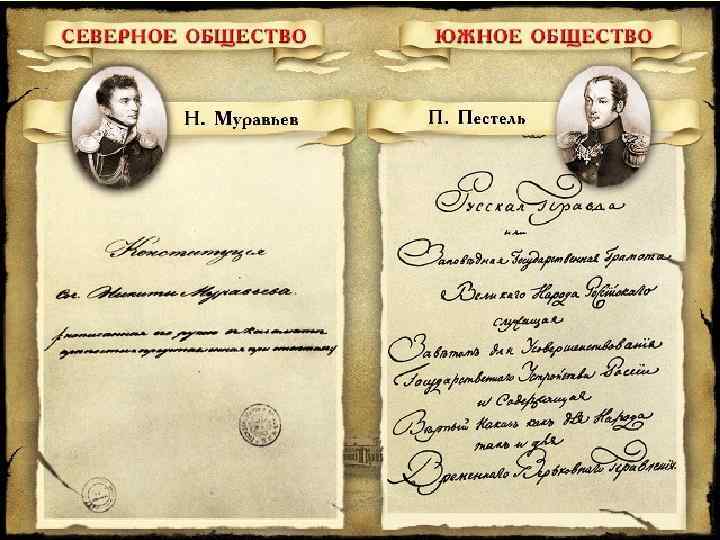 СЕВЕРНОЕ ОБЩЕСТВО
Н. Муравьев
Конституция
Никиты Муравьева.
ЮЖНОЕ ОБЩЕСТВО
П. Пестель
Русская Правда
или
Заповѣдная Государственная Грамота
Великаго Народа Россійскаго
служащая
Завѣтомъ для Усовершенствованія
Государственнаго Устройства Россіи
и Содержащая
Вѣрный Наказъ какъ для Народа
такъ и для
Временнаго Верховнаго Правленія.